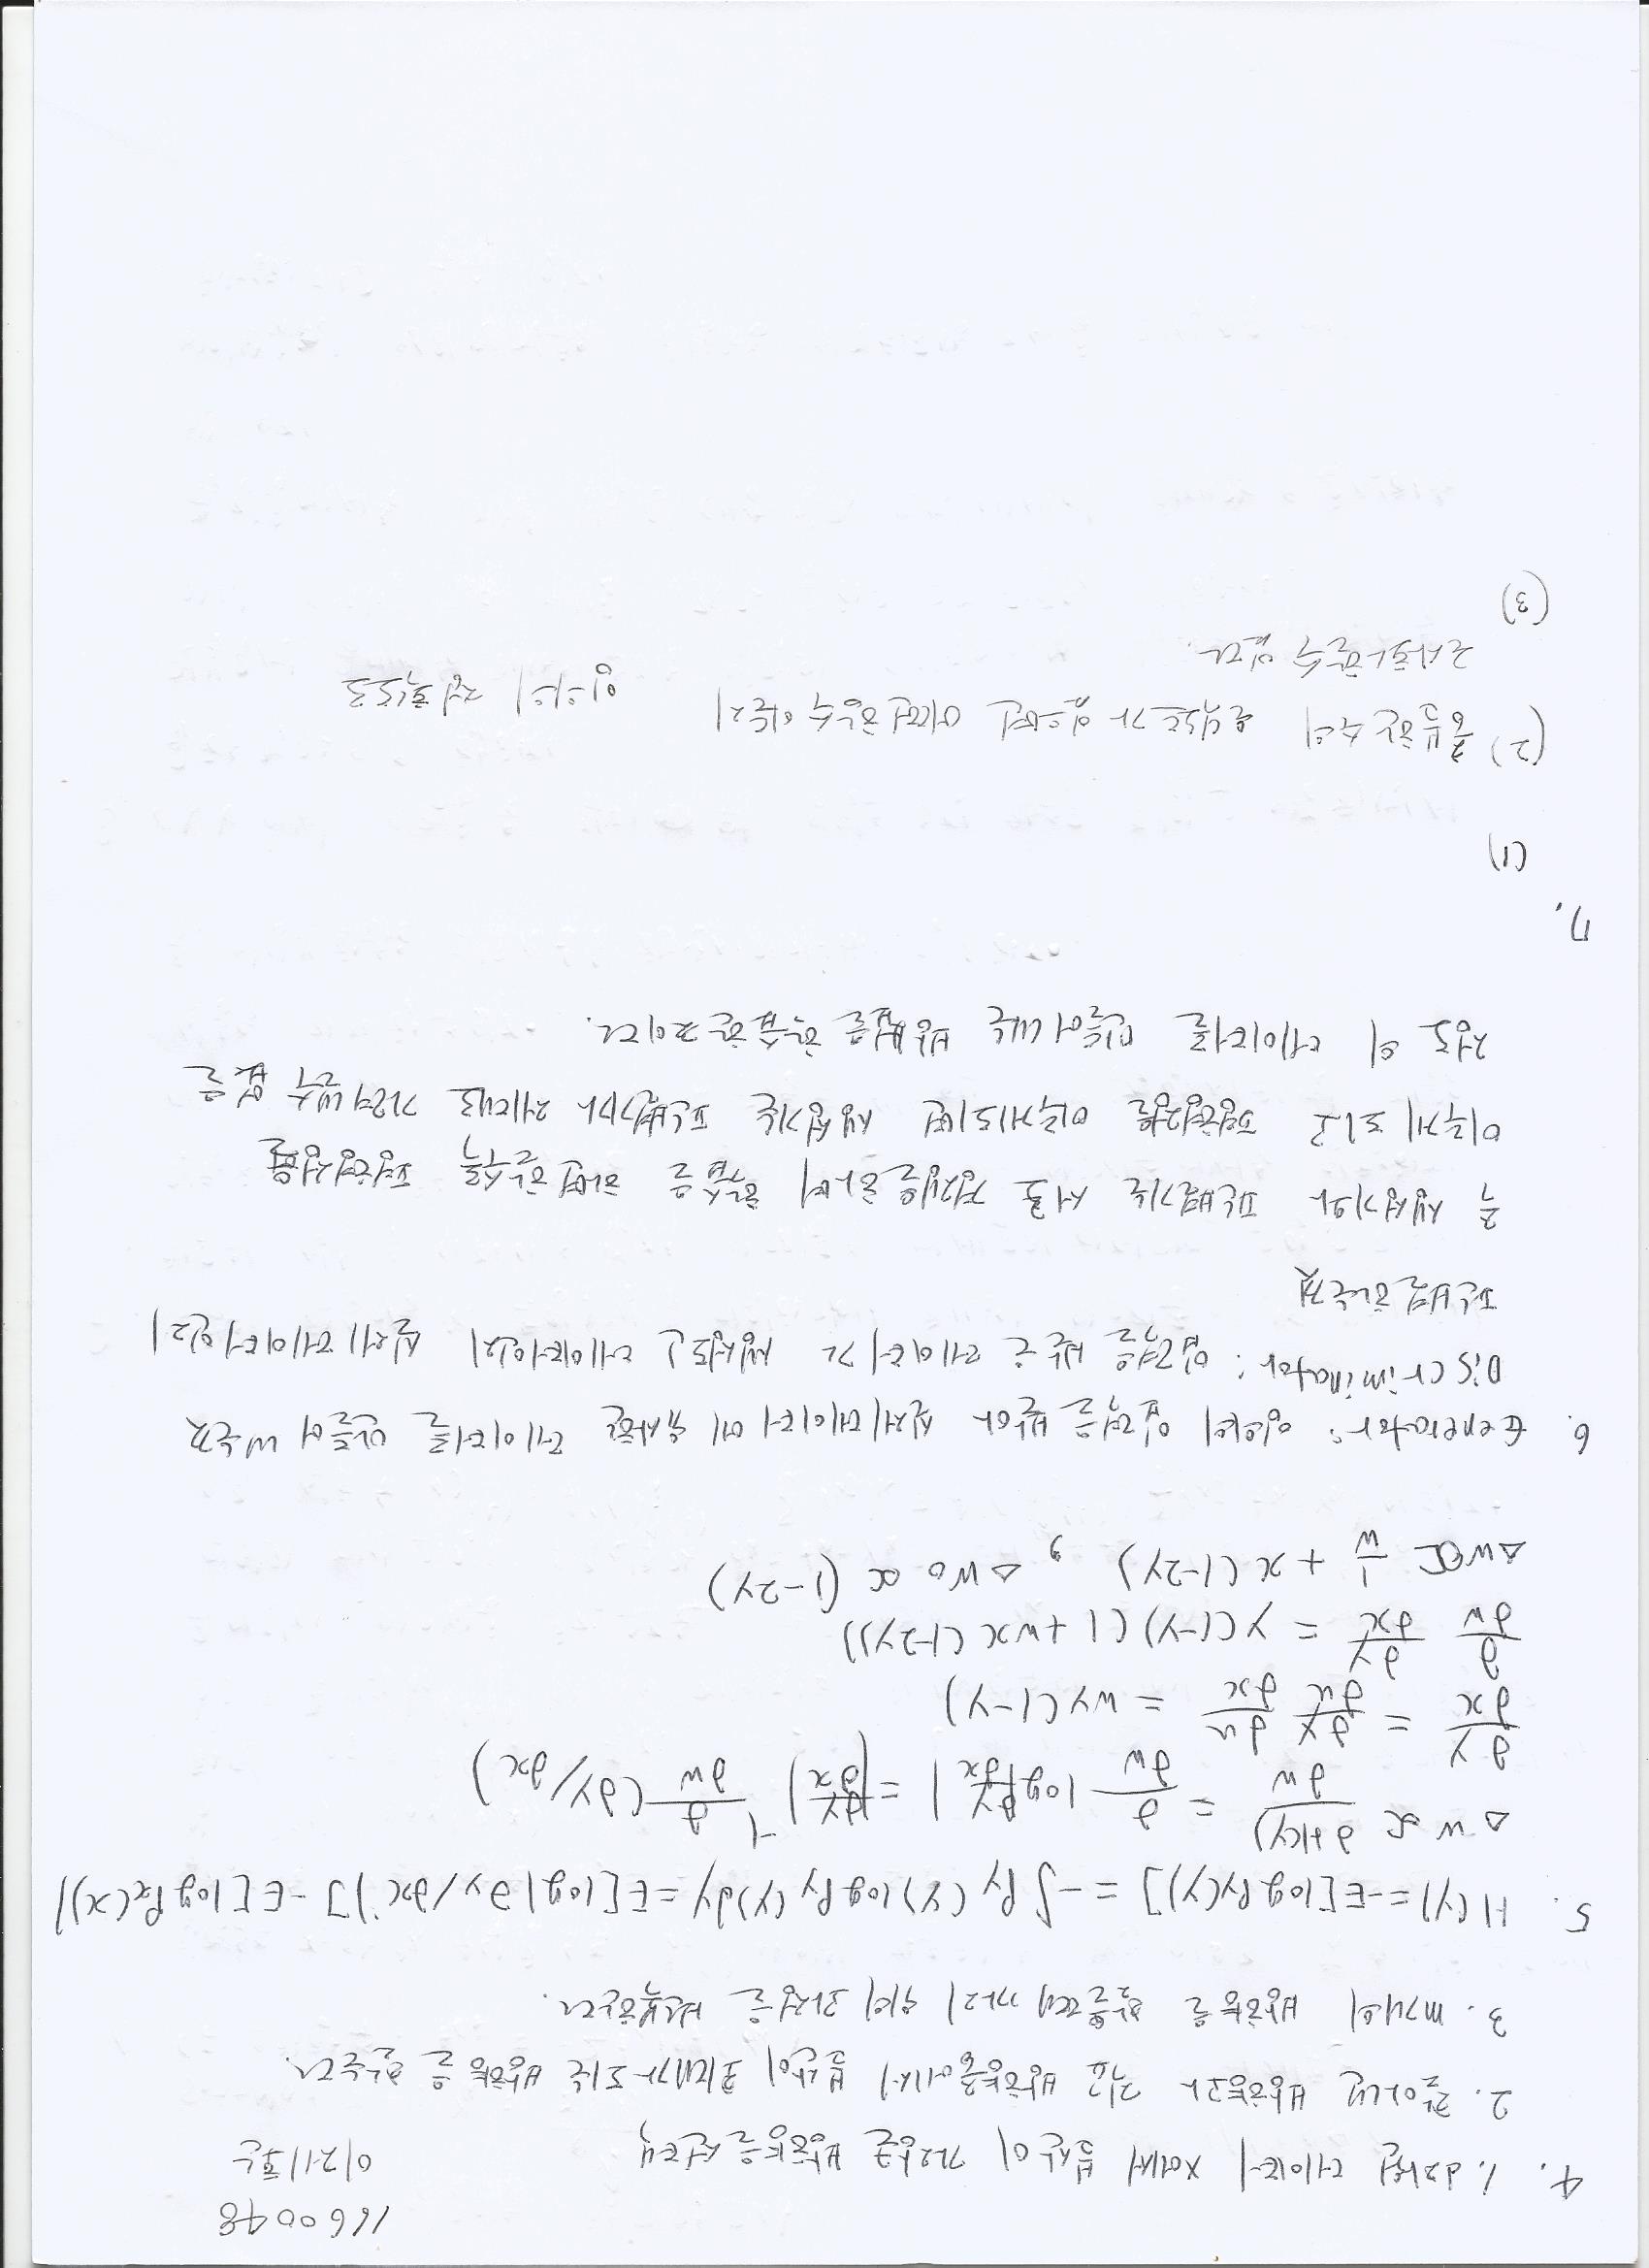 1660048
이제환
4. 1. d차원 데이터 x에서 분산이 가장큰 방향을 선택
2. 찾아낸 방향과 직교 방향중에서 분산이 최대가 되는 방향을 찾는다.
3. m개의 방향을 찾을때 까지 위의 과정을 반복한다.
5. H(y)=-E[log Py(y)] = -∫Py(y)logPy(y)dy = E[log|∂y/∂x|] - E[log Px(x)]
△w ∝ ∂H(y)/∂w = ∂/∂w log|∂y/∂x| = |∂y/∂x|⁻¹ ∂/∂w (∂y/∂x)
∂y/∂x = ∂y/∂u ∂u/∂x = wy(1-y)
∂/∂w ∂y/∂x = y(1-y)(1+wx(1-2y))
△w ∝ 1/w + x(1-2y) , △w₀ ∝ (1-2y)
6. Generator: 임의의 입력을 받아 실제데이터에 유사한 데이터를 만들어 내는것
Discriminator: 입력을 받은 데이터가 생성된 데이터인지 실제 데이터인지
판별하는것
즉 생성기와 판별기는 서로 경쟁을하며 학습을 하면할수록 평형성을
이루게 되고 평형점을 이루게되면 생성기는 판별기가 제대로 가려낼수 없을
정도의 데이터를 만들어내는 방법을 학습한것이다.
7.
(1)
(2) 충분한 수의 은닉노드가 있으면 어떤함수이든지 임의의 정확도로
근사화할수 있다.
(3)